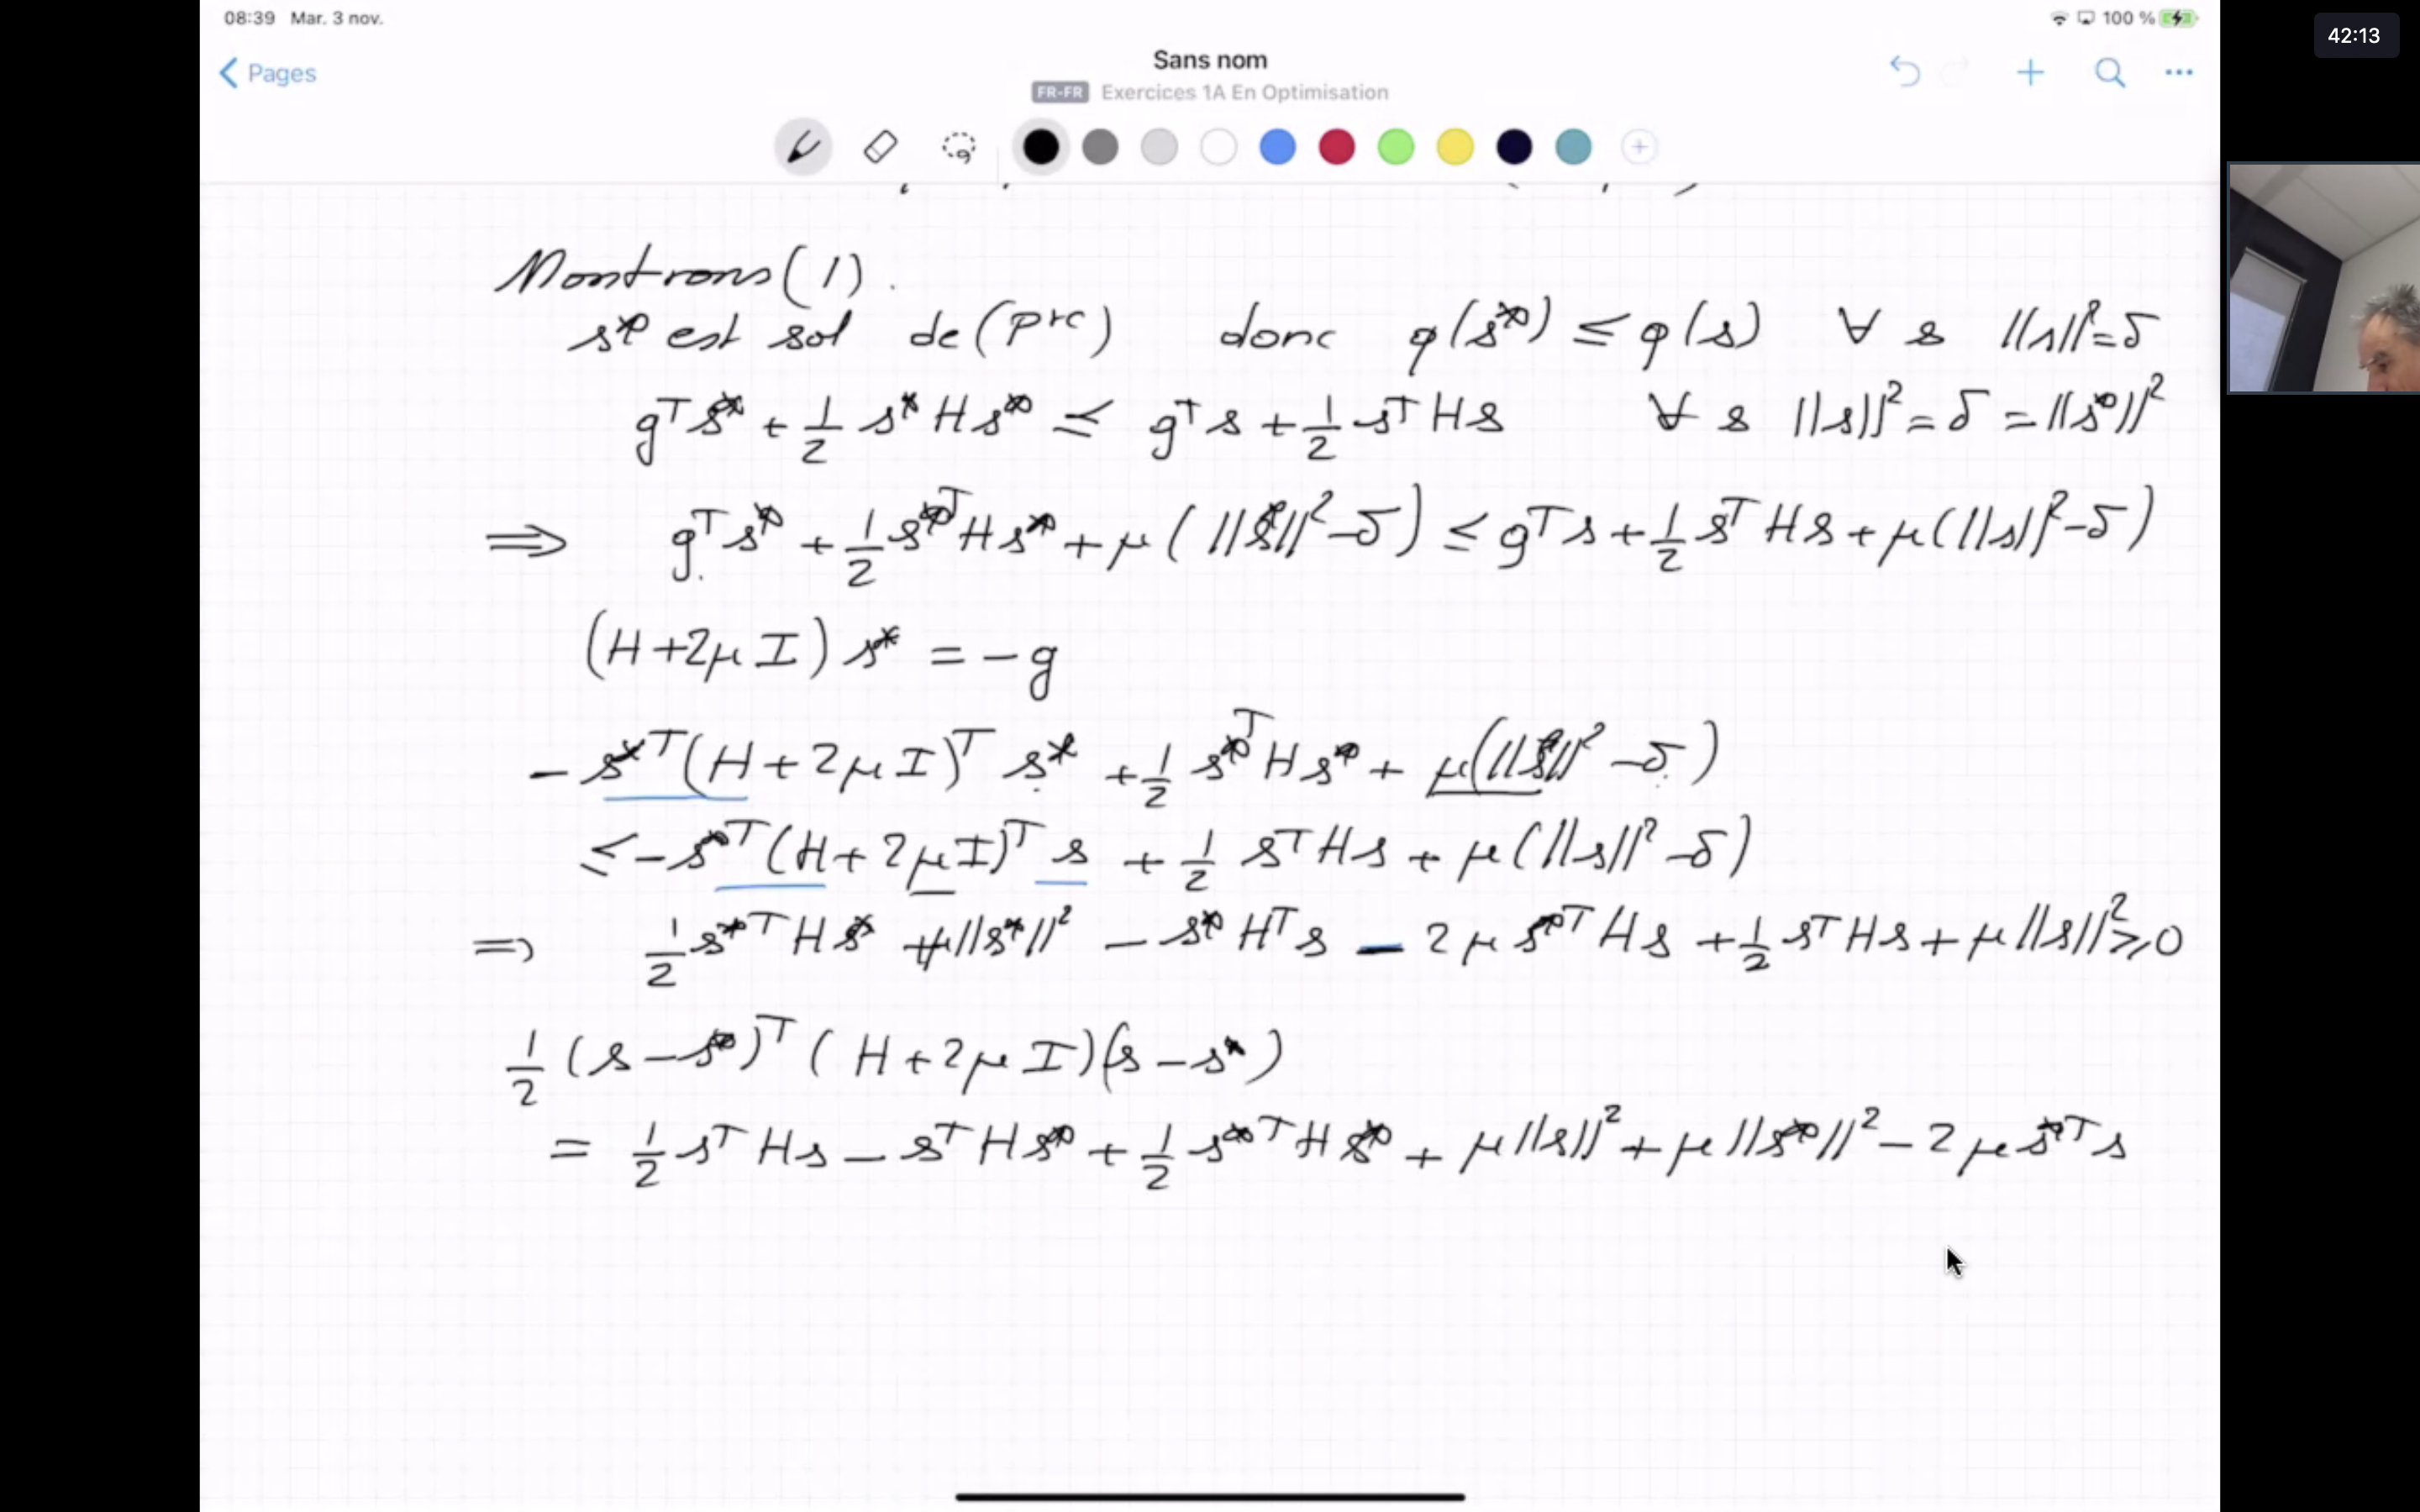 08:39 Mar. 3 nov.
100 %
42:13
Pages
Sans nom
FR-FR Exercices 1A En Optimisation
Montrons (1).
s* est sol de (Prc) donc q(s*) ≤ q(s) ∀ s ||s||²=δ
gᵀs* + 1/2 s* H s* ≤ gᵀs + 1/2 sᵀHs ∀ s ||s||² = δ = ||s*||²
⇒ gᵀs* + 1/2 s*ᵀHs* + μ(||s*||²-δ) ≤ gᵀs + 1/2 sᵀHs + μ(||s||²-δ)
(H+2μI) s* = -g
- s*ᵀ(H+2μI)ᵀ s* + 1/2 s*ᵀHs* + μ(||s*||²-δ)
≤ - s*ᵀ(H+2μI)ᵀ s + 1/2 sᵀHs + μ(||s||²-δ)
⇒ 1/2 s*ᵀHs* + μ||s*||² - s* Hᵀs - 2μ s*ᵀHs + 1/2 sᵀHs + μ||s||² ≥ 0
1/2 (s-s*)ᵀ (H+2μI)(s-s*)
= 1/2 sᵀHs - sᵀHs* + 1/2 s*ᵀHs* + μ||s||² + μ||s*||² - 2μ s*ᵀs